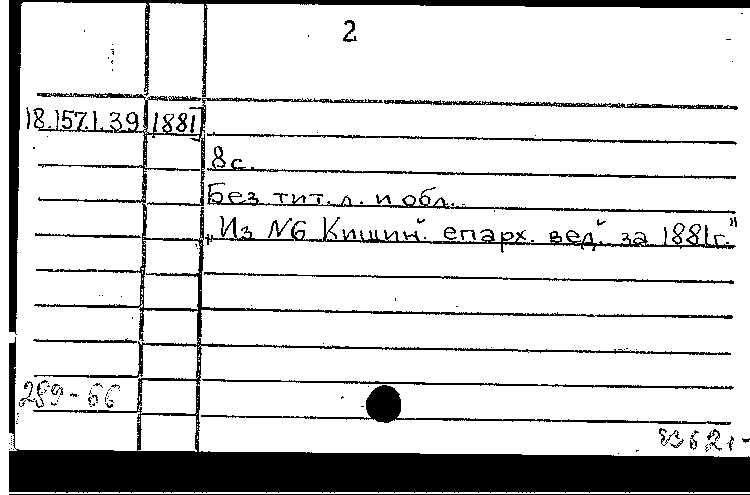 2
18.157.1.39 1881
8 с.
Без тит. л. и обл.
„Из N6 Кишин. епарх. вед. за 1881г."
289-66